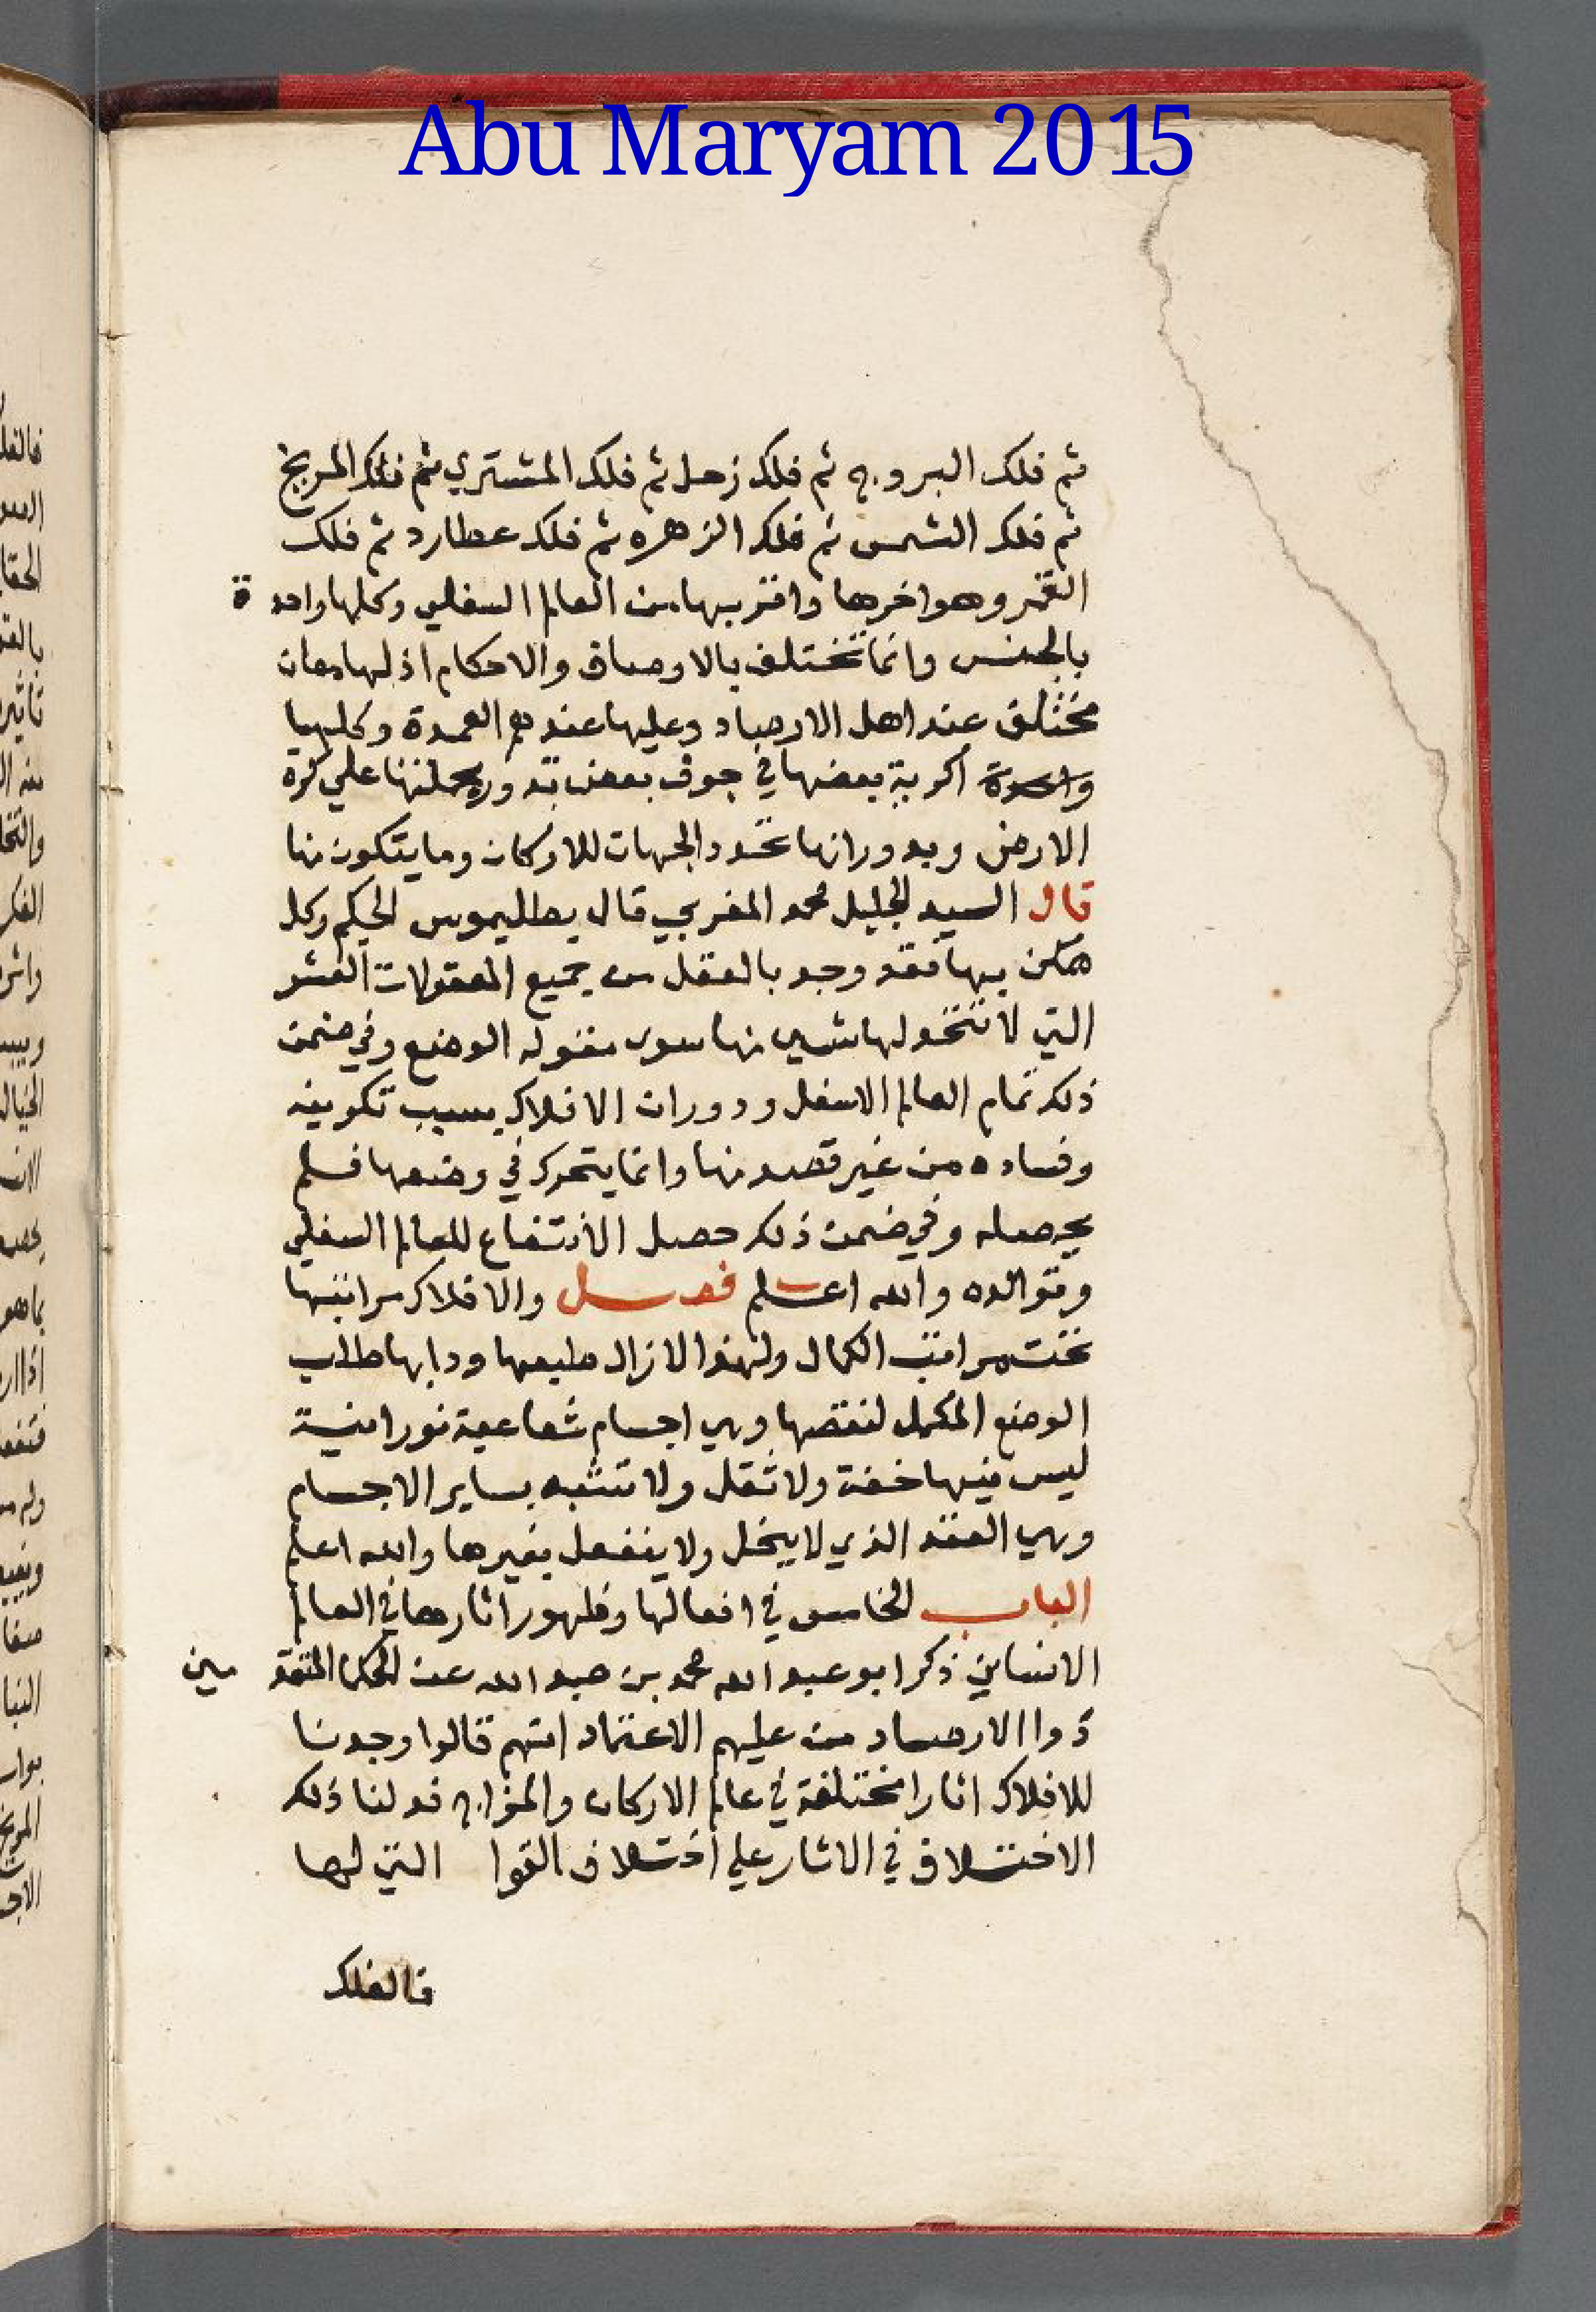 Abu Maryam 2015
ثم فلك البروج ثم فلك زحل ثم فلك المشتري ثم فلك المريخ
ثم فلك الشمس ثم فلك الزهره ثم فلك عطارد ثم فلك
القمر وهو اخرها واقربها من العالم السفلي وكلها واحدة
بالجنس وانما تختلف بالاوصاف والاحكام اذ لها معان
مختلف عند اهل الارصاد وعليها عندهم العمدة وكلها
واحدة اكرية بعضها في جوف بعض تدور بجملتها علي كرة
الارض وبدورانها تحدد الجهات للاركان وما يتكون منها
قال السيد الجليل محمد المغربي قال بطليموس الحكيم وكل
ممكن بها فقد وجد بالعقل من جميع المعقولات العشر
التي لا لها شي منها سوى مقوله الوضع وفي ضمن
ذلك تمام العالم الاسفل ودوران الافلاك بسبب تكوينه
وفساده من غير قصد منها وانما يتحرك في وضعها فلم
يحصله وفي ضمن ذلك حصل الانتفاع للعالم السفلي
وتوالده والله اعلم فصل والافلاك مراتبها
تحت مراتب الكمال ولهذا لازال طبعها ودابها طلاب
الوضع المكمل لنقصها وهي اجسام شعاعية نورانية
ليس فيها خفة ولا ثقل ولا تتشبه بساير الاجسام
وهي العقد الذي لا ينحل ولا ينفعل بغيرها والله اعلم
الباب الخامس في افعالها وظهور اثارها في العالم
الانساني ذكر ابو عبد الله محمد بن عبد الله عن الحكما المتقد مين
ذوا الارصاد من عليهم الاعتماد انهم قالوا وجدنا
للافلاك اثارا مختلفة في عالم الاركان والمزاج فدلنا ذلك
الاختلاف في الاثار علي اختلاف القوا التي لها
فالفلك